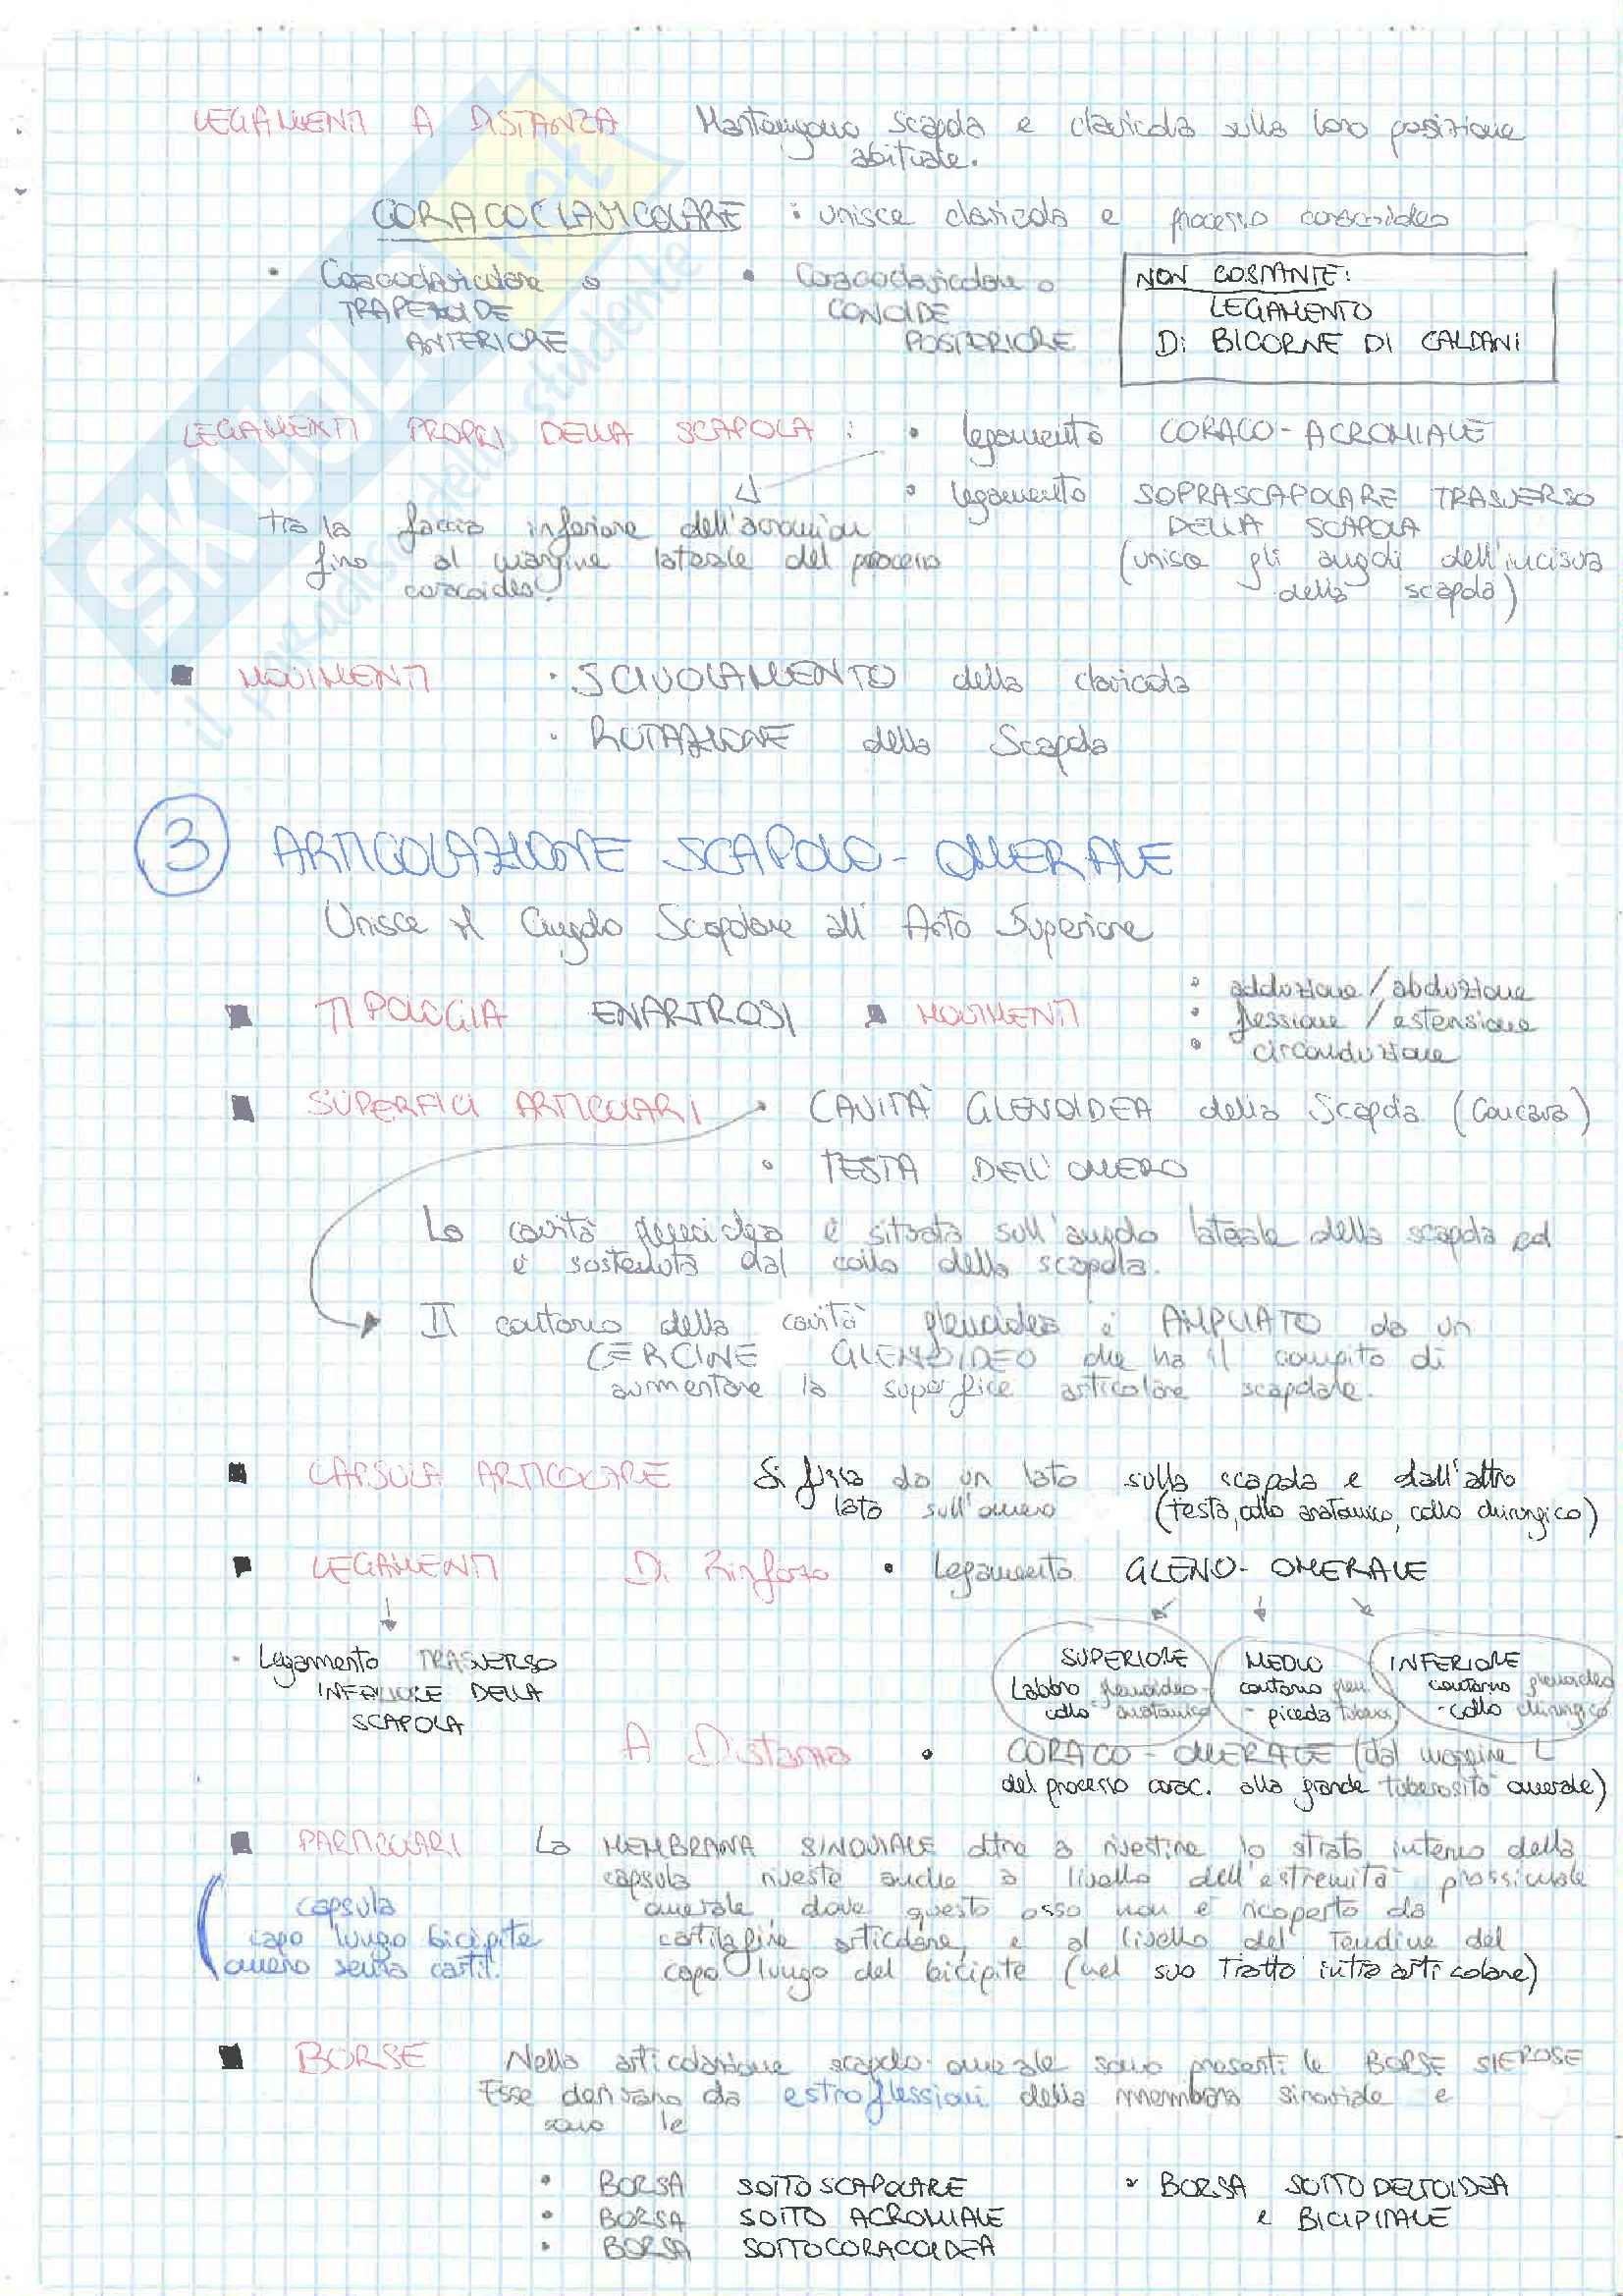 LEGAMENTI A DISTANZA Mantengono scapola e clavicola nella loro posizione
abituale.
CORACOCLAVICOLARE : unisce clavicola e processo coracoideo
• Coracoclavicolare o • Coracoclavicolare o
TRAPEZOIDE CONOIDE
ANTERIORE POSTERIORE
NON COSTANTE:
LEGAMENTO
Di BICORNE DI CALDANI
LEGAMENTI PROPRI DELLA SCAPOLA : • legamento CORACO-ACROMIALE
• legamento SOPRASCAPOLARE TRASVERSO
DELLA SCAPOLA
(unisce gli angoli dell'incisura
della scapola)
tra la faccia inferiore dell'acromion
fino al margine laterale del processo
coracoideo
MOVIMENTI • SCIVOLAMENTO della clavicola
• ROTAZIONE della Scapola
3 ARTICOLAZIONE SCAPOLO-OMERALE
Unisce il Cingolo Scapolare all'Arto Superiore
TIPOLOGIA ENARTROSI MOVIMENTI • adduzione / abduzione
• flessione / estensione
• circonduzione
SUPERFICI ARTICOLARI • CAVITÀ GLENOIDEA della Scapola (concava)
• TESTA DELL'OMERO
La cavità glenoidea è situata sull'angolo laterale della scapola ed
è sostenuta dal collo della scapola.
Il contorno della cavità glenoidea è AMPLIATO da un
CERCINE GLENOIDEO che ha il compito di
aumentare la superfice articolare scapolare.
CAPSULA ARTICOLARE Si fissa da un lato sulla scapola e dall'altro
lato sull'omero (testa, collo anatomico, collo chirurgico)
LEGAMENTI Di Rinforzo • Legamento GLENO-OMERALE
• Legamento TRASVERSO
INFERIORE DELLA
SCAPOLA
SUPERIORE
Labbro glenoideo-
collo anatomico
MEDIO
contorno glen.
- piccola tuberos.
INFERIORE
contorno glenoideo
- collo chirurgico
A Distanza • CORACO-OMERALE (dal margine L
del processo corac. alla grande tuberosità omerale)
PARTICOLARI La MEMBRANA SINOVIALE oltre a rivestire lo strato interno della
capsula riveste anche a livello dell'estremità prossimale
omerale, dove questo osso non è ricoperto da
cartilagine articolare, e al livello del Tendine del
capo lungo del bicipite (nel suo Tratto intra articolare)
capsula
capo lungo bicipite
omero senza cartil.
BORSE Nella articolazione scapolo-omerale sono presenti le BORSE SIEROSE
Esse derivano da estroflessioni della membrana sinoviale e
sono le
• BORSA SOTTOSCAPOLARE • BORSA SOTTODELTOIDEA
• BORSA SOTTO ACROMIALE e BICIPITALE
• BORSA SOTTOCORACOIDEA
SKUOLA.net
il paradiso dello studente